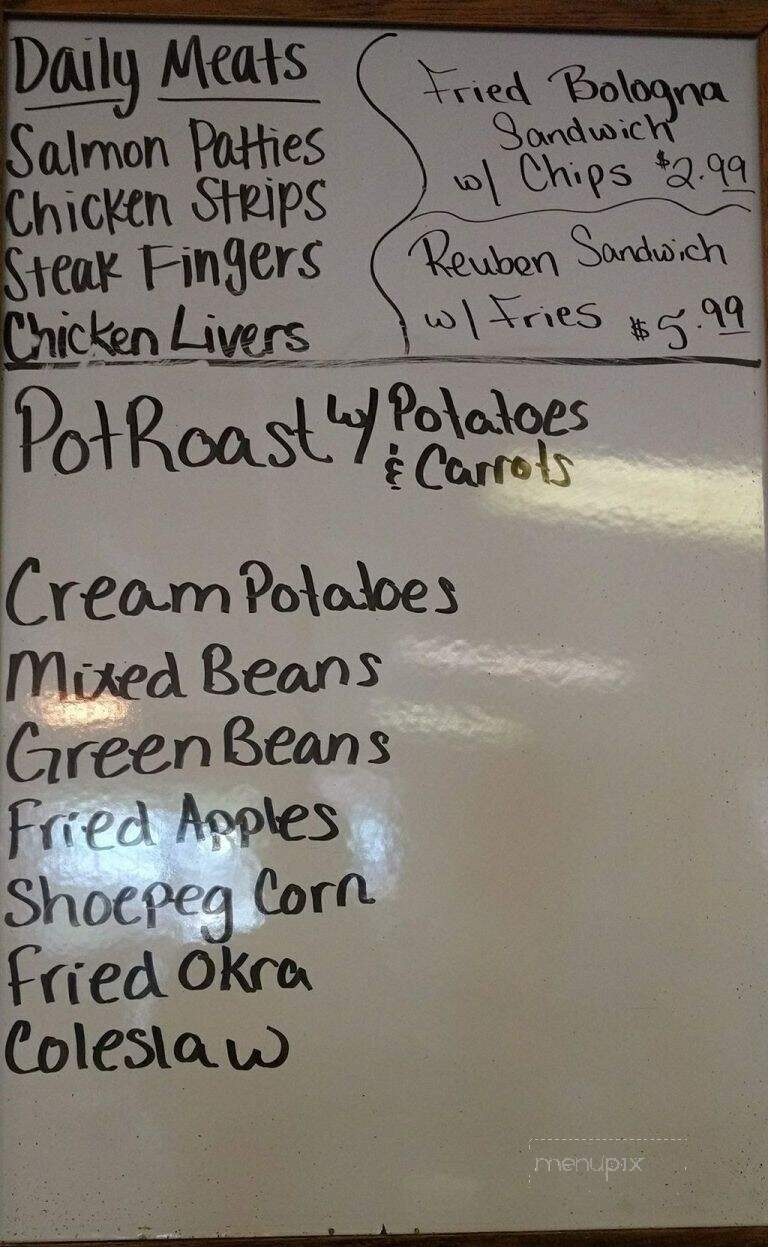 Daily Meats
Salmon Patties
Chicken Strips
Steak Fingers
Chicken Livers
Fried Bologna
Sandwich
w/ Chips $2.99
Reuben Sandwich
w/ Fries $5.99
Pot Roast w/ Potatoes
& Carrots
Cream Potatoes
Mixed Beans
Green Beans
Fried Apples
Shoepeg Corn
Fried Okra
Coleslaw
menupix